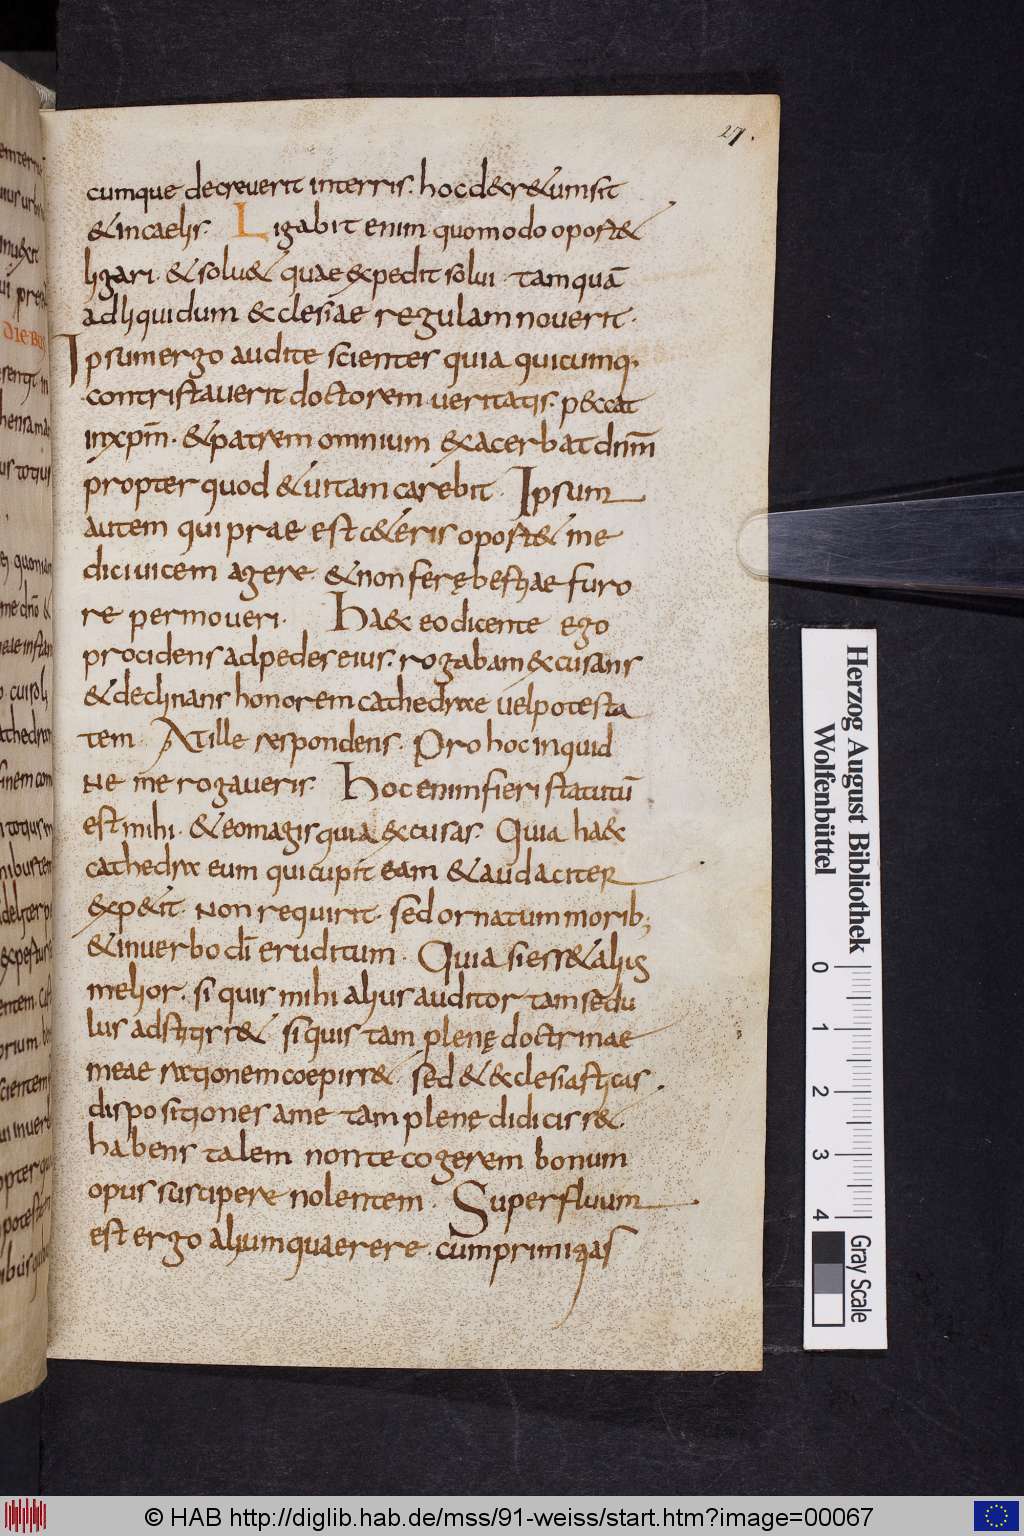 27.
cumque decreuerit interris. hocdecr&umsit
&incaelis. Ligabit enim quomodo oport&
ligari. & solu& quae expedit solui. tamquā
adliquidum &clesiae regulamnouerit.
Ipsumergo audite scienter quia quicumq;
contristauerit doctorem ueritatis. p&cat
inxp̄m. &patrem omnium exacerbat dn̄m
propter quod &uitamcarebit. Ipsum
autem qui prae est c&eris oport& me
diciuicem agere. &nonferę bestiae furo
re permoueri. Ha&c eodicente ego
procidens adpedes eius. rogabam excusans
&declinans honorem cathedrae uelpotesta
tem. Atille respondens. Pro hoc inquid
Ne me rogaueris. Hoc enimfieri statutū
est mihi. &eomagis quia excusas. Quia ha&c
cathedra eum quicupit eam &audaciter
exp&it. Non requirit. sed ornatum morib;
&inuerbo dī eruditum. Quia siess& alius
melior. si quis mihi alius auditor tamsedu
lus adstitiss& siquis tam plenę doctrinae
meae rationemcoepiss& sed & &clesiasticas
dispositiones ame tam plenę didiciss&.
habens talem nonte cogerem bonum
opus suscipere nolentem. Superfluum
est ergo aliumquaerere. cumprimitias
Herzog August Bibliothek
Wolfenbüttel
0 1 2 3 4
Gray Scale
© HAB http://diglib.hab.de/mss/91-weiss/start.htm?image=00067